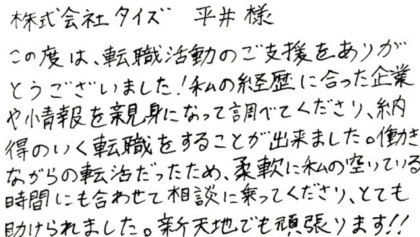 株式会社タイズ 平井様
この度は、転職活動のご支援をありが
とうございました!私の経歴に合った企業
や情報を親身になって調べてくださり、納
得のいく転職をすることが出来ました。働き
ながらの転活だったため、柔軟に私の空いている
時間にも合わせて相談に乗ってくださり、とても
助けられました。新天地でも頑張ります!!